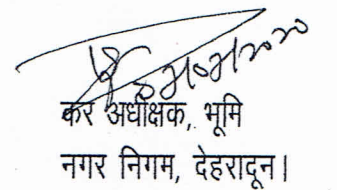 कर अधीक्षक, भूमि
नगर निगम, देहरादून।